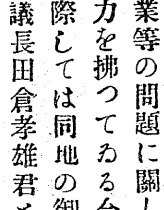 業等の問題に關し
力を拂つてゐる
際しては同地の御
議長田倉孝雄君